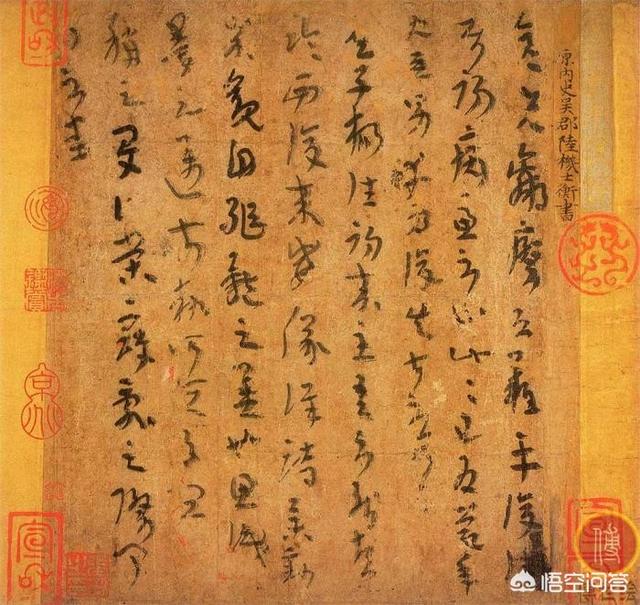 原內史吳郡陸機士衡書
彦先羸瘵恐難平復往
屬初病慮不止此此已為慶承
使唯男幸為復失前憂耳
吳子楊往初來主吾不能盡
臨西復來威儀詳跱舉動
成觀自軀體之美也思識
量之邁前執所恒有宜
稱之夏伯榮寇亂之際聞
問不悉
宣和
悟空问答